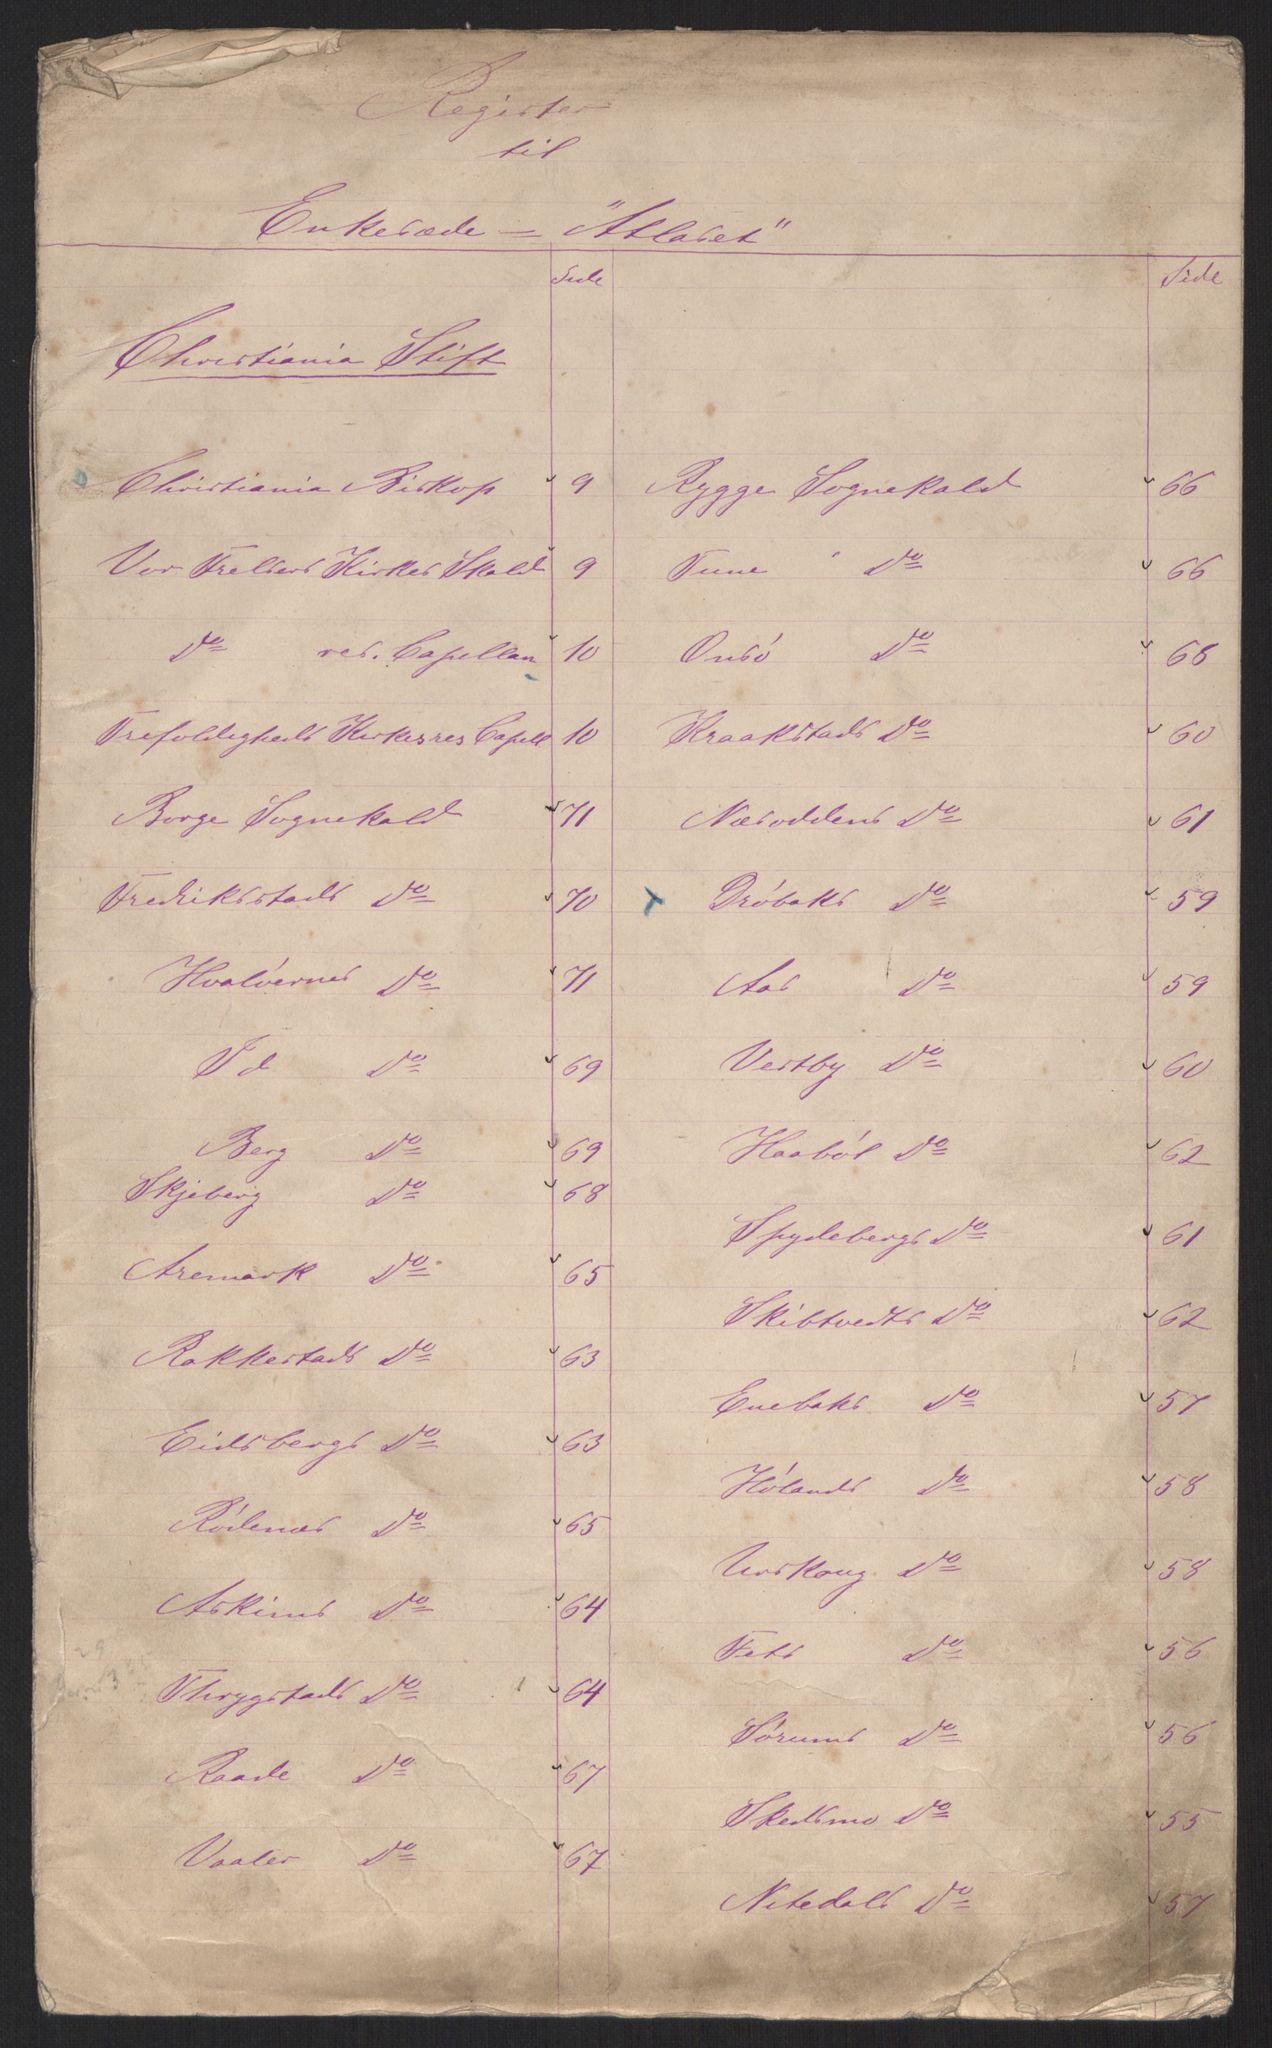 Register
til
Enkesæde = "Atlaset"
Side
Christiania Stift
Christiania Biskop 9
Vor Frelsers Kirkes Skald 9
Do res. Capellan 10
Trefoldigheds Kirkes res Capell 10
Borge Sognekald 71
Fredriksstads Do 70
Hvaløernes Do 71
Id Do 69
Berg Do 69
Skjeberg Do 68
Aremark Do 65
Rakkestads Do 63
Eidsbergs Do 63
Rødenæs Do 65
Askims Do 64
Thrygstads Do 64
Raade Do 67
Vaaler Do 67
Side
Rygge Sognekald 66
Tune Do 66
Onsø Do 68
Kraakstads Do 60
Næsoddens Do 61
Drøbaks Do 59
Aas Do 59
Vestby Do 60
Haabøl Do 62
Spydebergs Do 61
Skibtvedts Do 62
Enebaks Do 57
Hølands Do 58
Urskoug Do 58
Fets Do 56
Sørums Do 56
Skedsmo Do 55
Nitedals Do 57